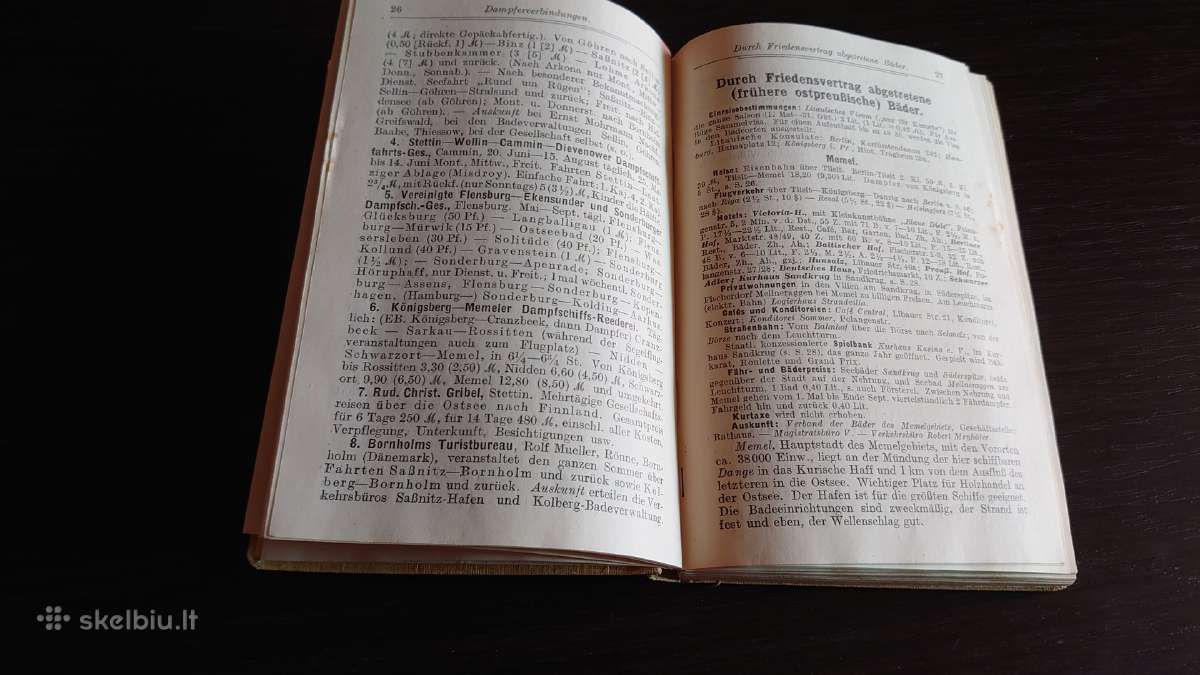 26 Dampferverbindungen.
(4 ℳ; direkte Gepäckabfertig.). Von Göhren nach
(0,50 [Rückf. 1] ℳ)—Binz (1 [2] ℳ) — Saßnitz
— Stubbenkammer (3 [5] ℳ) — Lohme
(4 [7] ℳ) und zurück. (Nach Arkona nur Mont.,
Donn., Sonnab.). — Nach besonderer Bekanntmachung
Dienst. Seefahrt „Rund um Rügen": Saßnitz—
Sellin—Göhren—Stralsund und zurück; Freit. nach
densee (ab Göhren); Mont. u. Donnerst. nach
(ab Göhren). — Auskunft bei Ernst Mohrmann,
Greifswald, bei den Badeverwaltungen Sellin, Göhren,
Baabe, Thiessow, bei der Gesellschaft selbst (s. o.).
4. Stettin—Wollin—Cammin—Dievenower Dampfschiff-
fahrts-Ges., Cammin, 20. Juni—15. August täglich,
bis 14. Juni Mont., Mittw., Freit. Fahrten Stettin—
ziger Ablage (Misdroy). Einfache Fahrt: I. Kaj. 4, 2. Kaj.
2¾ ℳ, mit Rückf. (nur Sonntags) 5 (3½) ℳ, Kinder die Hälfte.
5. Vereinigte Flensburg—Ekensunder und Sonderburger
Dampfsch.-Ges., Flensburg. Mai—Sept. tägl. Flensburg—
Glücksburg (50 Pf.) — Langballigau (1 ℳ), Flens-
burg—Mürwik (15 Pf.) — Ostseebad (20 Pf.) —
sersleben (30 Pf.) — Solitüde (40 Pf.); Flensburg—
Kollund (40 Pf.) — Gravenstein (1 ℳ) — Sonderburg
(1½ ℳ); — Sonderburg—Apenrade; Sonderburg—
Höruphaff, nur Dienst. u. Freit. 1 mal wöchentl. Sonder-
burg—Assens, Flensburg — Sonderburg — Kopen-
hagen. (Hamburg—) Sonderburg—Kolding—Aarhus.
6. Königsberg—Memeler Dampfschiffs-Reederei. Täg-
lich: (EB. Königsberg—Cranzbeek, dann Dampfer) Cranz-
beek — Sarkau—Rossitten (während der Segelflug-
veranstaltungen auch zum Flugplatz) — Nidden —
Schwarzort—Memel, in 6¼—6¾ St. Von Königsberg
bis Rossitten 3,30 (2,50) ℳ, Nidden 6,60 (4,50) ℳ, Schwarz-
ort 9,90 (6,50) ℳ, Memel 12,80 (8,50) ℳ und umgekehrt.
7. Rud. Christ. Gribel, Stettin. Mehrtägige Gesellschafts-
reisen über die Ostsee nach Finnland. Gesamtpreis
für 6 Tage 250 ℳ, für 14 Tage 480 ℳ, einschl. aller Kosten,
Verpflegung, Unterkunft, Besichtigungen usw.
8. Bornholms Turistbureau, Rolf Mueller, Rönne, Born-
holm (Dänemark), veranstaltet den ganzen Sommer über
Fahrten Saßnitz—Bornholm und zurück sowie Kol-
berg—Bornholm und zurück. Auskunft erteilen die Ver-
kehrsbüros Saßnitz-Hafen und Kolberg-Badeverwaltung.
Durch Friedensvertrag abgetretene Bäder. 27
Durch Friedensvertrag abgetretene
(frühere ostpreußische) Bäder.
Einreisebestimmungen: Litauisches Visum („nur für Kurorte"), für
die ganze Saison (15. Mai—31. Okt.)
Für einen Aufenthalt bis zu
in den Badeorten ausgestellt.
Litauische Konsulate: Berlin, Kurfürstendamm 201; Ham-
burg, Hansaplatz 12; Königsberg i. Pr., Hint. Tragheim
Memel.
Reise: Eisenbahn über Tilsit. Berlin-Tilsit 2. Kl.
29 ℳ, Tilsit—Memel 18,20 (9,90) Lit. Dampfer von Königsberg in
St., s. S. 26.
Flugverkehr über Tilsit—Königsberg—Danzig nach Berlin
nach Riga (2½ St., 10 $) — Reval (5½ St., 22 $) — Helsingfors (7½ St.,
28 $).
Hotels: Victoria-H., mit Kleinkunstbühne „Blaue Diele",
Rest., Café, Bar, Garten, Bad, Zh., Ah.; Berliner
Hof, Marktstr. 48/49, 40 Z. mit 60 B. v. 8—10 Lit.
Rest., Bäder, Zh., Ah.; Baltischer Hof,
48 B. v. 6—10 Lit., F. 2½, M. 2½, A. 2½—4½,
Bäder, Zh., Ah., gzj.; Hunsalz, Libauer Str. 40a; Preuß. Hof, Po-
langenstr. 27/28; Deutsches Haus, Friedrichsmarkt, 10 Z.; Schwarzer
Adler; Kurhaus Sandkrug in Sandkrug, s. S. 28.
Privatwohnungen in den Villen am Sandkrug, in Süderspitze, im
Fischerdorf Mellneraggen bei Memel zu billigen Preisen. Am Leuchtturm
(elektr. Bahn) Logierhaus Strandvilla.
Cafés und Konditoreien: Café Central, Libauer Str. 21, Konditorei,
Konzert; Konditorei Sommer, Polangenstr.
Straßenbahn: Vom Bahnhof über die Börse nach Schmelz; von der
Börse nach dem Leuchtturm.
Staatl. konzessionierte Spielbank Kurhaus Kasino e. V., im Kur-
haus Sandkrug (s. S. 28), das ganze Jahr geöffnet. Gespielt wird Bak-
karat, Roulette und Grand Prix.
Fähr- und Bäderpreise: Seebäder Sandkrug und Süderspitze, beide
gegenüber der Stadt auf der Nehrung, und Seebad Mellneraggen am
Leuchtturm. 1 Bad 0,40 Lit., s. auch Försterei. Zwischen Nehrung und
Memel gehen vom 1. Mai bis Ende Sept. viertelstündlich 2 Fährdampfer.
Fahrgeld hin und zurück 0,40 Lit.
Kurtaxe wird nicht erhoben.
Auskunft: Verband der Bäder des Memelgebiets, Geschäftsstelle:
Rathaus. — Magistratsbüro V. — Verkehrsbüro Robert Meyhöfer.
Memel, Hauptstadt des Memelgebiets, mit den Vororten
ca. 38 000 Einw., liegt an der Mündung der hier schiffbaren
Dange in das Kurische Haff und 1 km von dem Ausfluß des
letzteren in die Ostsee. Wichtiger Platz für Holzhandel an
der Ostsee. Der Hafen ist für die größten Schiffe geeignet.
Die Badeeinrichtungen sind zweckmäßig, der Strand ist
fest und eben, der Wellenschlag gut.
skelbiu.lt